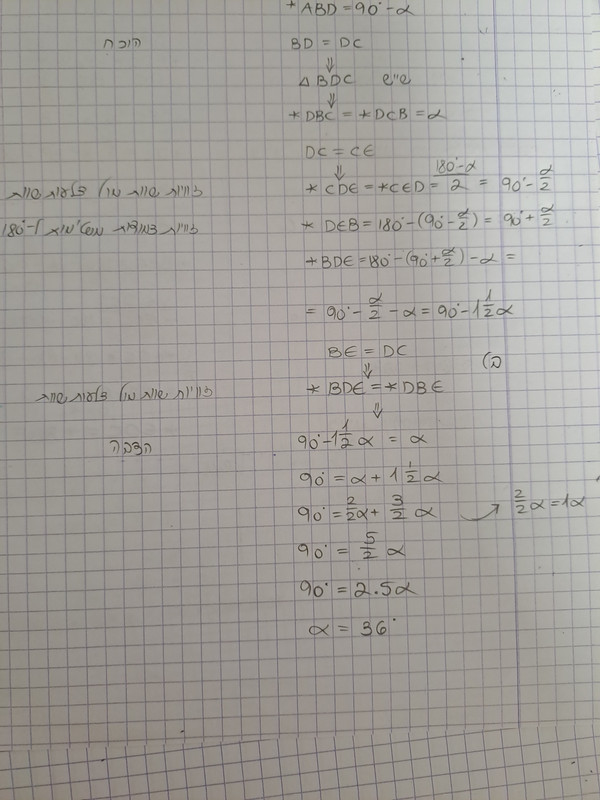 ∢ABD = 90° - α
הוכח BD = DC
⇓
△BDC ש"ש
⇓
∢DBC = ∢DCB = α
DC = CE
⇓
זוויות שוות מול צלעות שוות ∢CDE = ∢CED = (180° - α)/2 = 90° - α/2
180°-ל ∢DEB = 180° - (90° - α/2) = 90° + α/2
∢BDE = 180° - (90° + α/2) - α =
= 90° - α/2 - α = 90° - 1 1/2 α
BE = DC
⇓
זוויות שוות מול צלעות שוות ∢BDE = ∢DBE
⇓
הצבה 90° - 1 1/2 α = α
90° = α + 1 1/2 α
90° = 2/2 α + 3/2 α → 2/2 α = 1α
90° = 5/2 α
90° = 2.5α
α = 36°